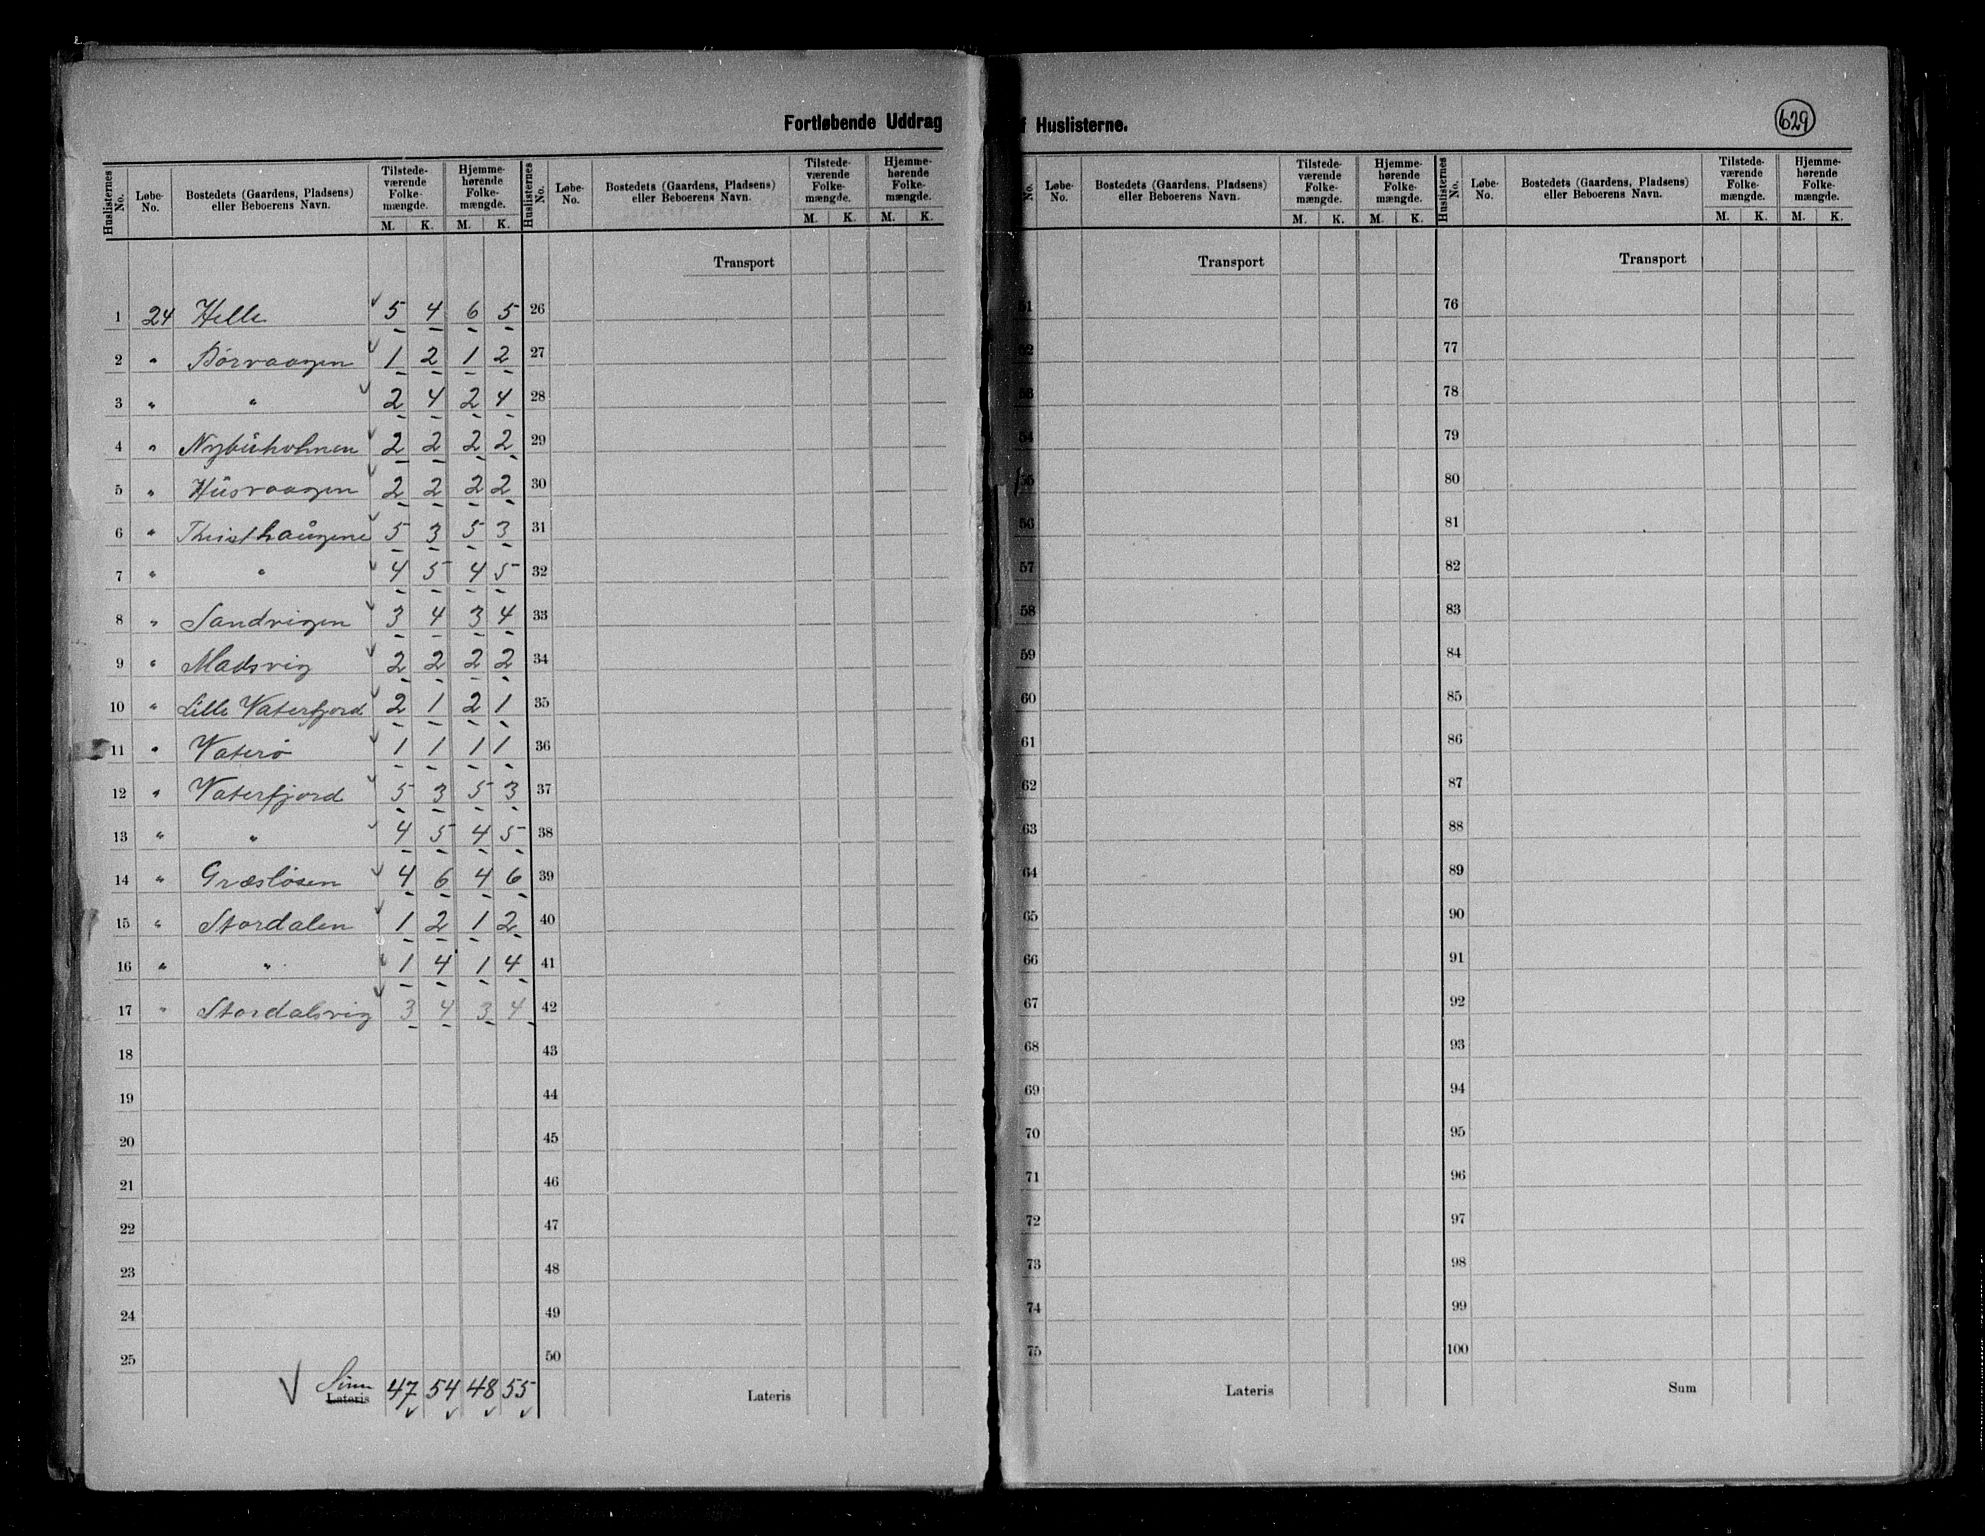 Fortløbende Uddrag f Huslisterne.
629
Huslisternes No. Løbe-No. Bostedets (Gaardens, Pladsens) eller Beboerens Navn. Tilstedeværende Folkemængde. M. K. Hjemmehørende Folkemængde. M. K.
Huslisternes No. Løbe-No. Bostedets (Gaardens, Pladsens) eller Beboerens Navn. Tilstedeværende Folkemængde. M. K. Hjemmehørende Folkemængde. M. K.
No. Løbe-No. Bostedets (Gaardens, Pladsens) eller Beboerens Navn. Tilstedeværende Folkemængde. M. K. Hjemmehørende Folkemængde. M. K.
Huslisternes No. Løbe-No. Bostedets (Gaardens, Pladsens) eller Beboerens Navn. Tilstedeværende Folkemængde. M. K. Hjemmehørende Folkemængde. M. K.
Transport Transport Transport
1 24 Helle 5 4 6 5 26 51 76
2 " Børvaagen 1 2 1 2 27 52 77
3 " " 2 4 2 4 28 53 78
4 " Nybuholmen 2 2 2 2 29 54 79
5 " Husvaagen 2 2 2 2 30 55 80
6 " Thisthaugene 5 3 5 3 31 56 81
7 " " 4 5 4 5 32 57 82
8 " Sandvigen 3 4 3 4 33 58 83
9 " Madsvig 2 2 2 2 34 59 84
10 " Lille Vaterfjord 2 1 2 1 35 60 85
11 " Vaterø 1 1 1 1 36 61 86
12 " Vaterfjord 5 3 5 3 37 62 87
13 " " 4 5 4 5 38 63 88
14 " Græsløsen 4 6 4 6 39 64 89
15 " Stordalen 1 2 1 2 40 65 90
16 " " 1 4 1 4 41 66 91
17 " Stordalsvig 3 4 3 4 42 67 92
18 43 68 93
19 44 69 94
20 45 70 95
21 46 71 96
22 47 72 97
23 48 73 98
24 49 74 99
25 50 75 100
Sum Lateris 47 54 48 55 Lateris Lateris Sum